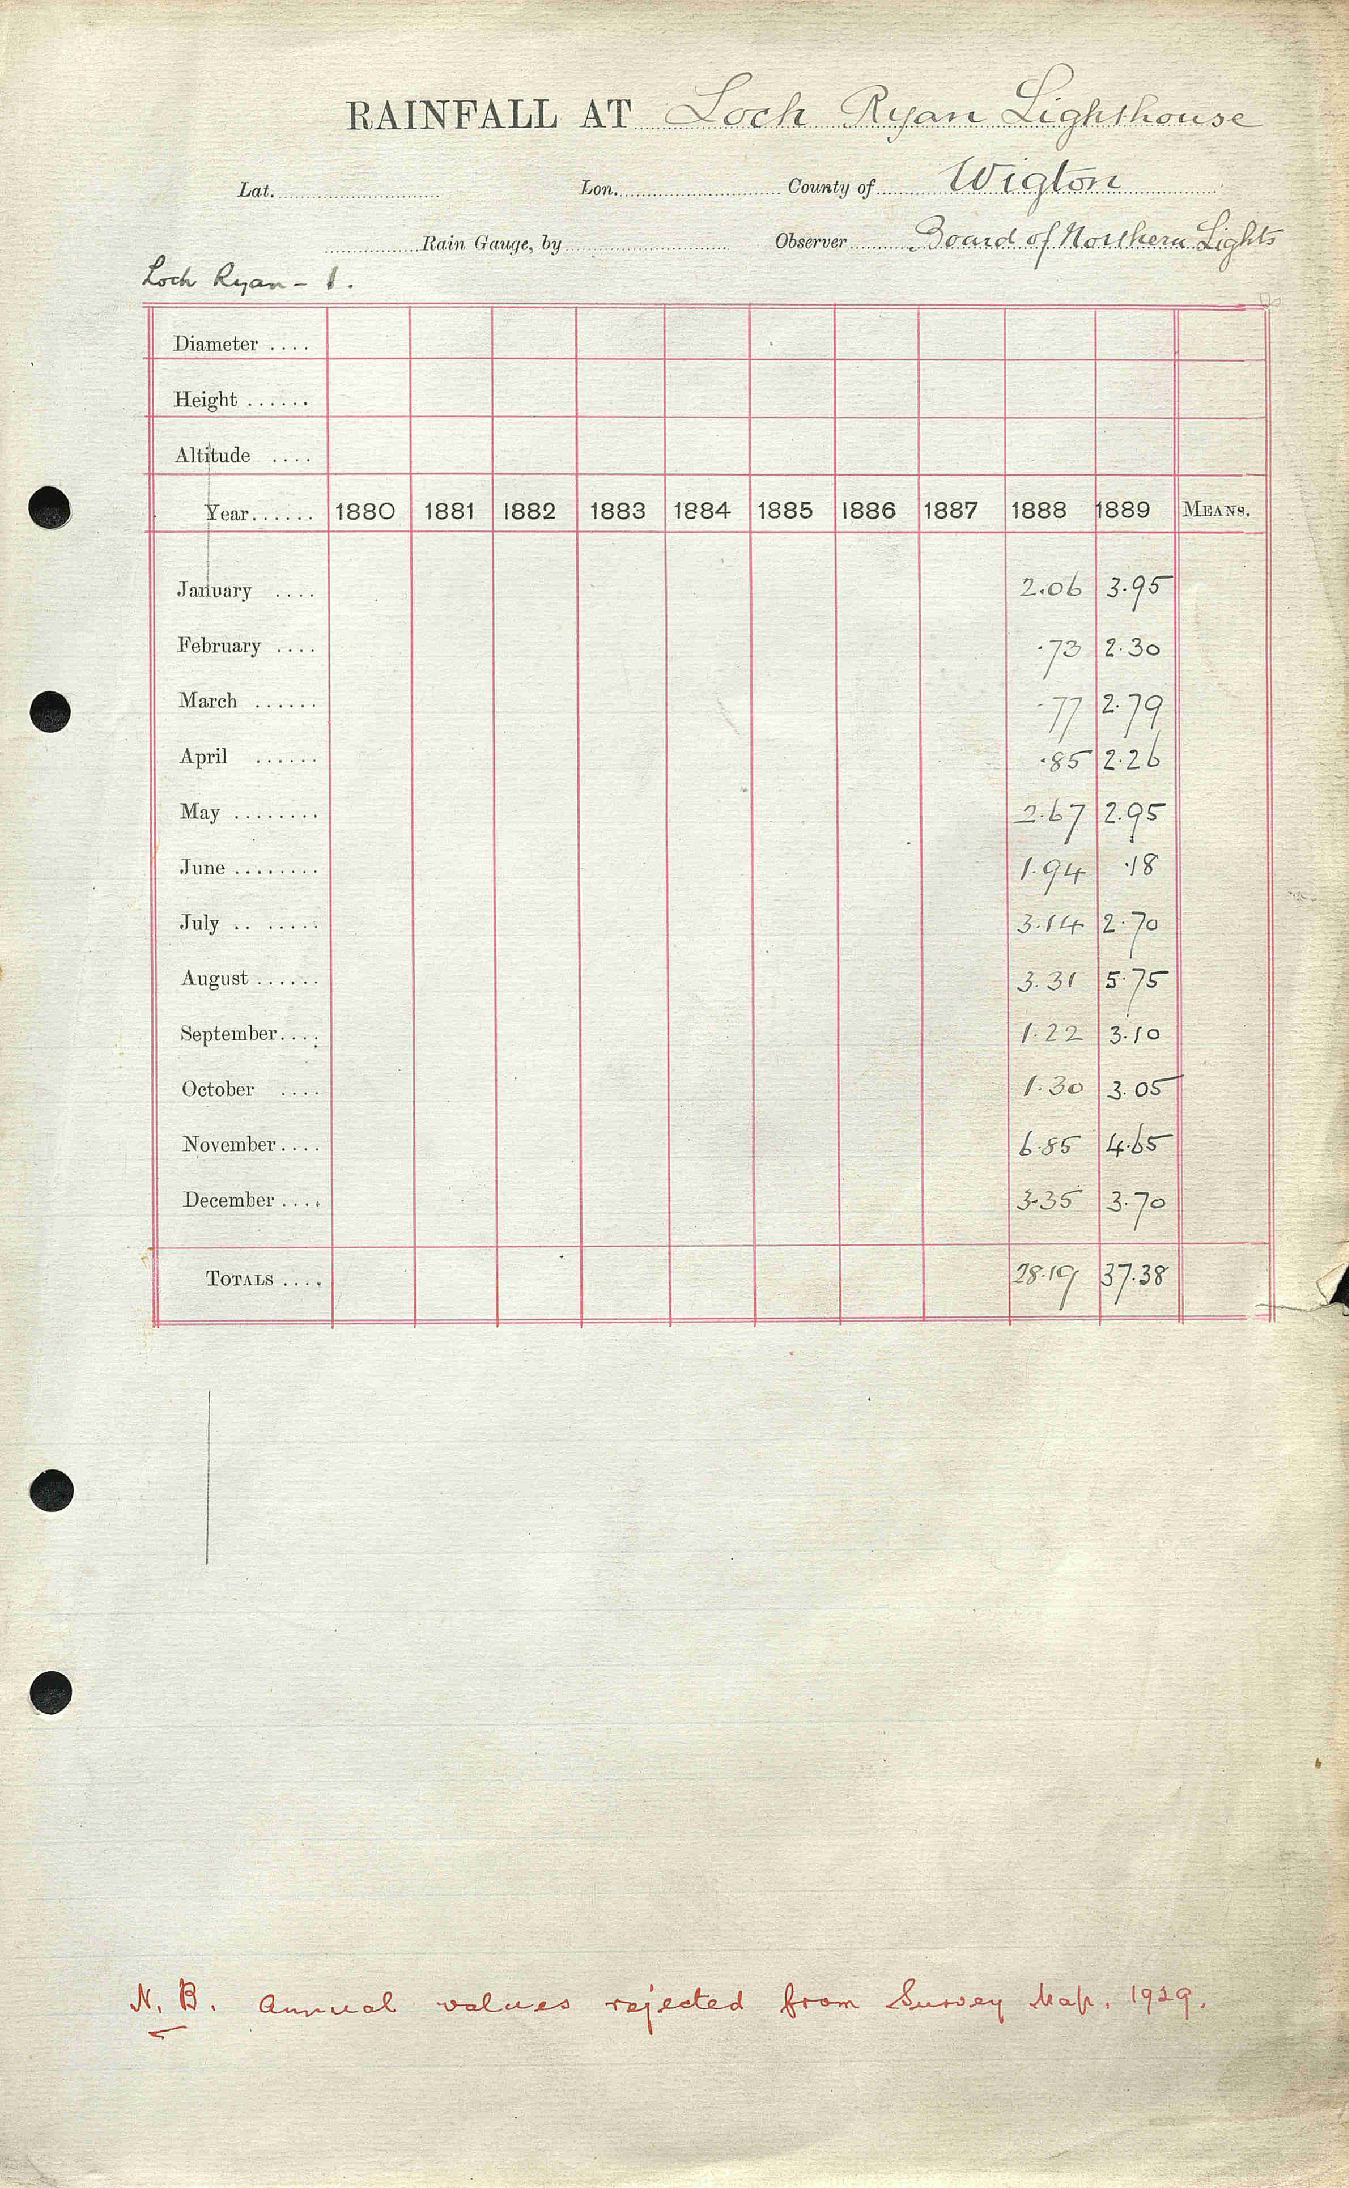 RAINFALL AT Loch Ryan Lighthouse
Lat. Lon. County of Wigton
Rain Gauge, by Observer Board of Northern Lights
Loch Ryan - 1.
Diameter ....
Height ......
Altitude ....
Year...... 1880 1881 1882 1883 1884 1885 1886 1887 1888 1889 MEANS.
January .... 2.06 3.95
February .... .73 2.30
March ...... .77 2.79
April ...... .85 2.26
May ........ 2.67 2.95
June ........ 1.94 .18
July .. ..... 3.14 2.70
August ...... 3.31 5.75
September.... 1.22 3.10
October .... 1.30 3.05
November.... 6.85 4.65
December .... 3.35 3.70
TOTALS .... 28.19 37.38
N. B. Annual values rejected from Survey Map. 1929.